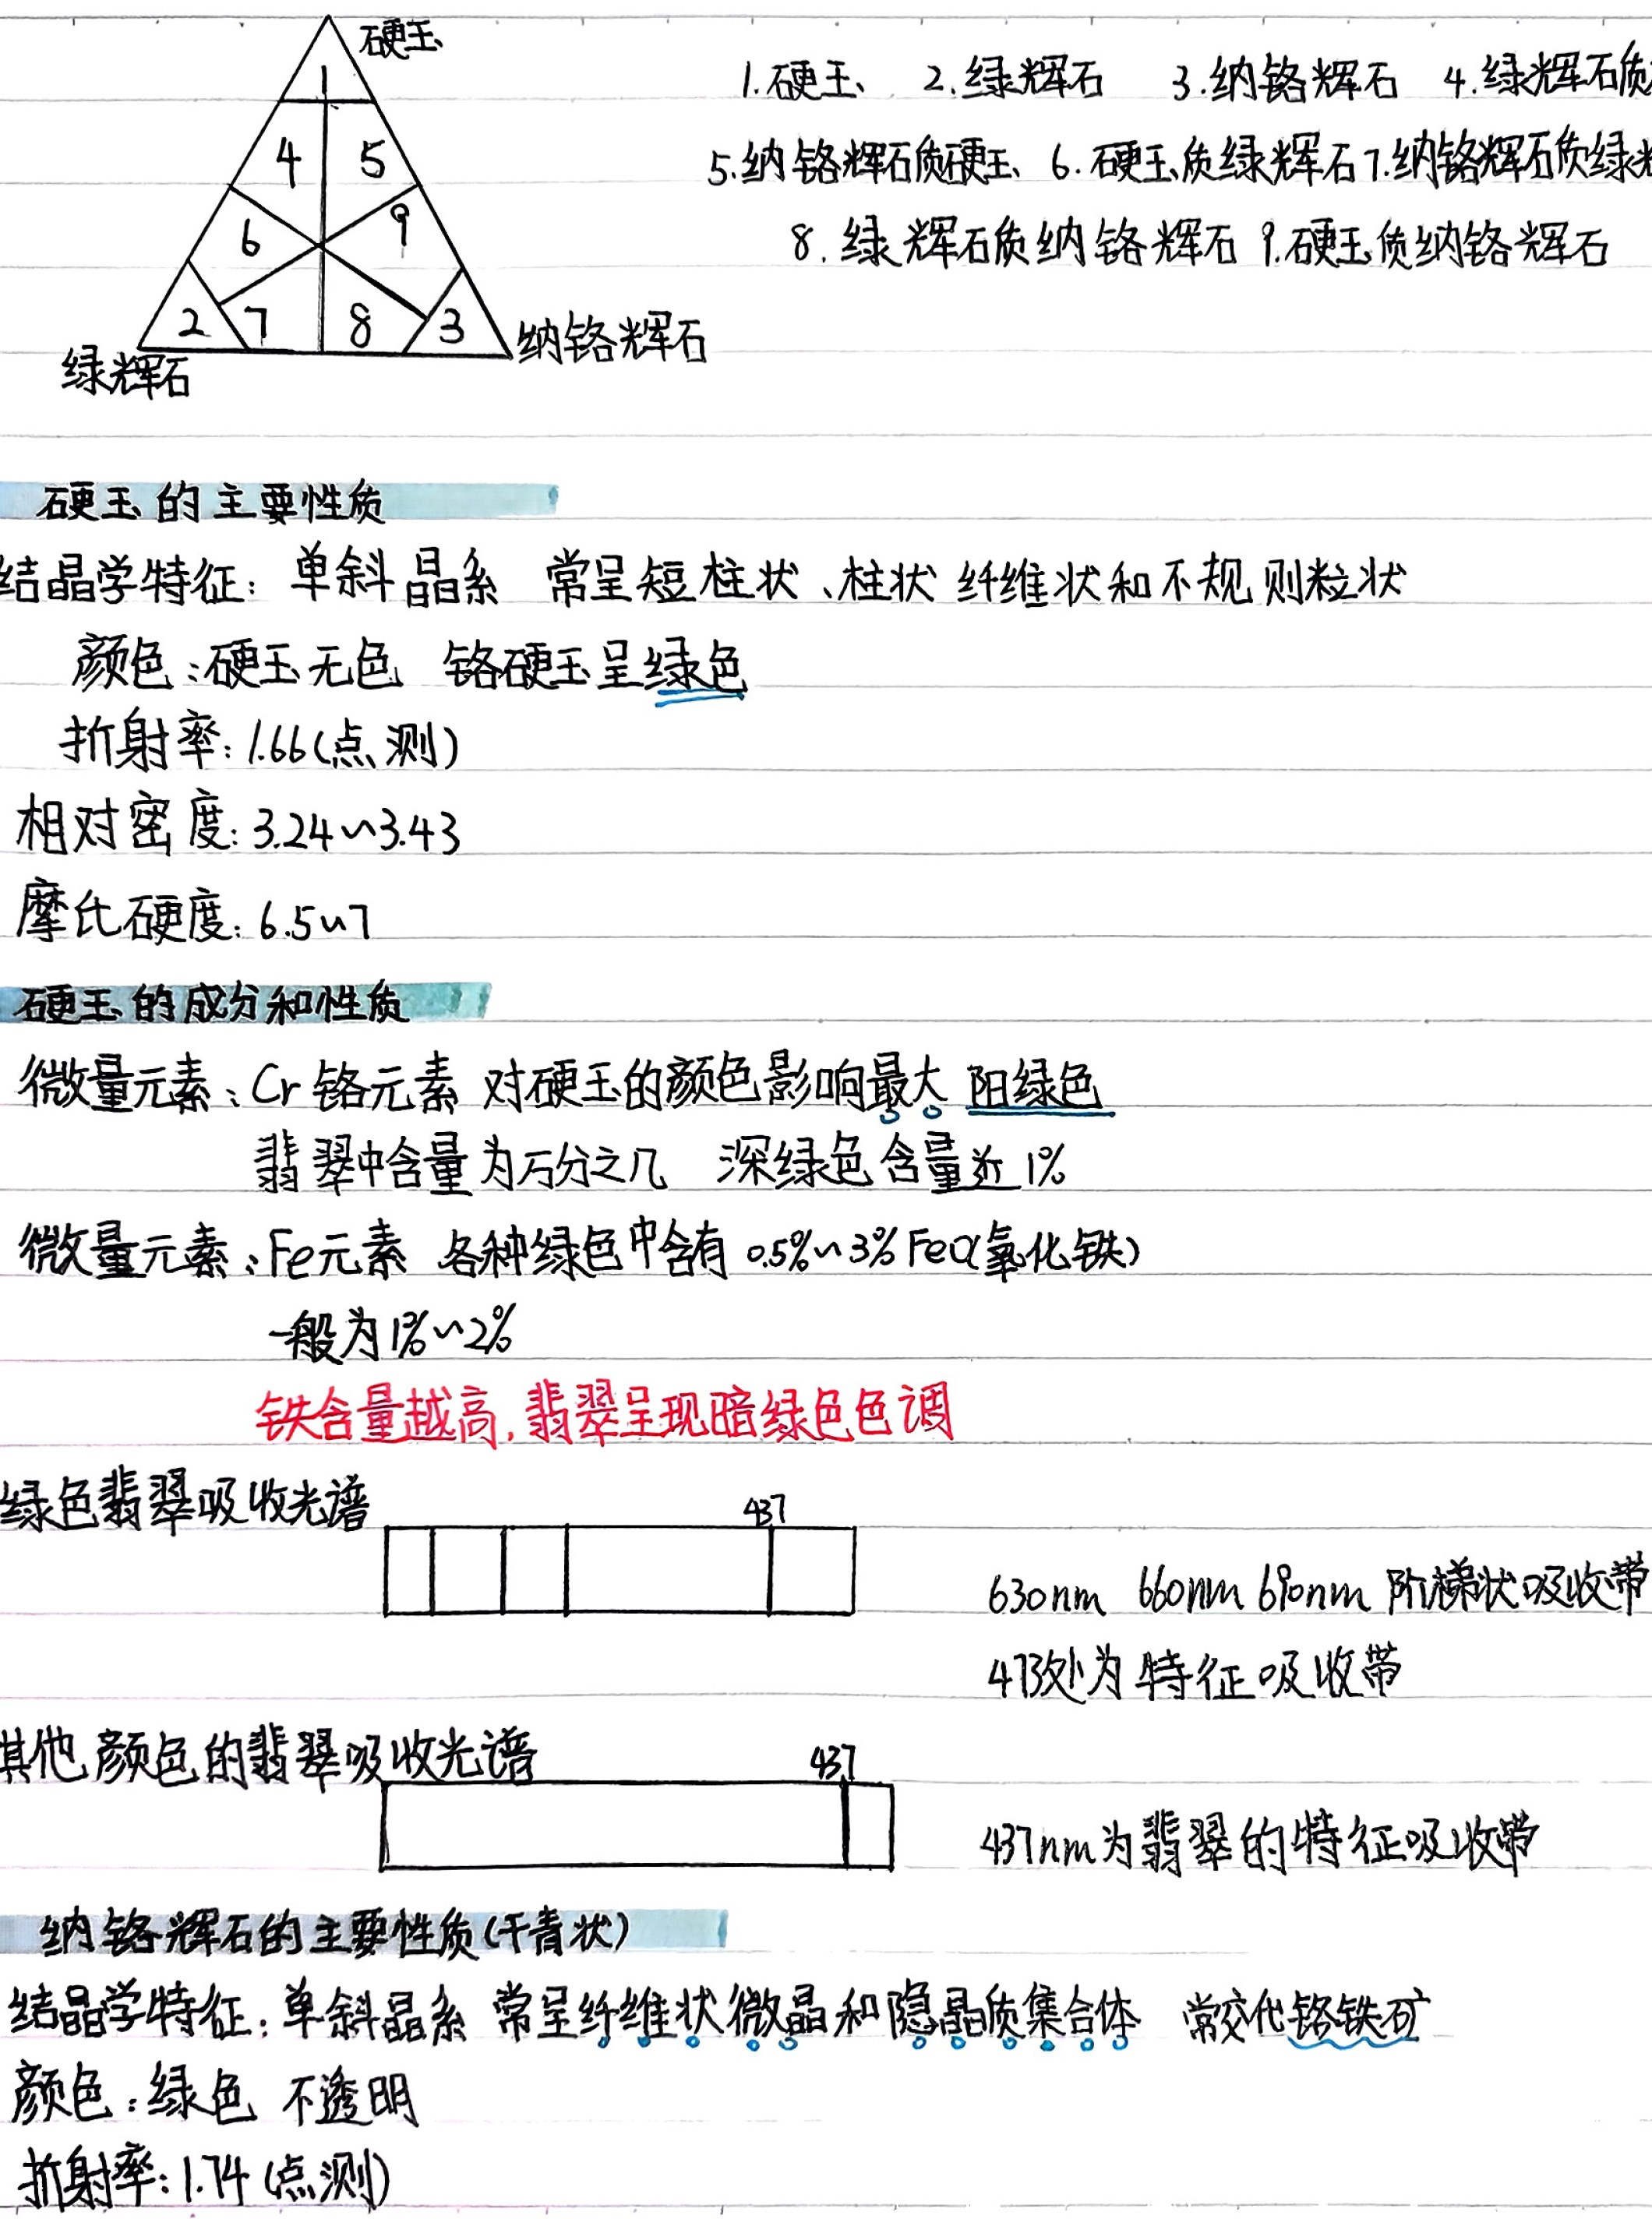 硬玉
1.硬玉 2.绿辉石 3.纳铬辉石 4.绿辉石质
5.纳铬辉石质硬玉 6.硬玉质绿辉石 7.纳铬辉石质绿
8.绿辉石质纳铬辉石 9.硬玉质纳铬辉石
1
4 5
6 9
2 7 8 3
绿辉石
纳铬辉石
硬玉的主要性质
结晶学特征:单斜晶系 常呈短柱状、柱状 纤维状和不规则粒状
颜色:硬玉无色 铬硬玉呈绿色
折射率:1.66(点测)
相对密度:3.24~3.43
摩氏硬度:6.5~7
硬玉的成分和性质
微量元素:Cr铬元素 对硬玉的颜色影响最大 阳绿色
翡翠中含量为万分之几 深绿色含量近1%
微量元素:Fe元素 各种绿色中含有0.5%~3%FeO(氧化铁)
一般为1%~2%
铁含量越高,翡翠呈现暗绿色色调
绿色翡翠吸收光谱
437
630nm 660nm 690nm 阶梯状吸收带
473处为特征吸收带
其他颜色的翡翠吸收光谱
437
437nm为翡翠的特征吸收带
纳铬辉石的主要性质(干青状)
结晶学特征:单斜晶系 常呈纤维状微晶和隐晶质集合体 常交代铬铁矿
颜色:绿色 不透明
折射率:1.74(点测)